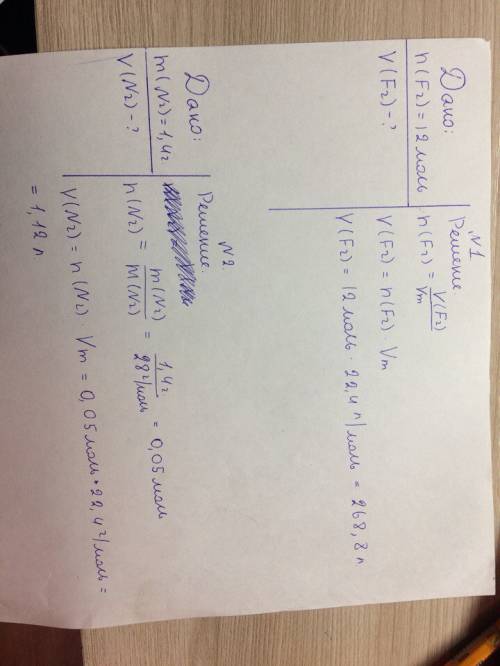 N1
Дано:
n(F2) = 12 моль
V(F2) - ?
Решение
n(F2) = V(F2) / Vm
V(F2) = n(F2) · Vm
V(F2) = 12 моль · 22,4 л/моль = 268,8 л
N2
Дано:
m(N2) = 1,4г
V(N2) - ?
Решение.
n(N2) = m(N2) / M(N2) = 1,4г / 28г/моль = 0,05 моль
V(N2) = n(N2) · Vm = 0,05 моль · 22,4 г/моль =
= 1,12 л